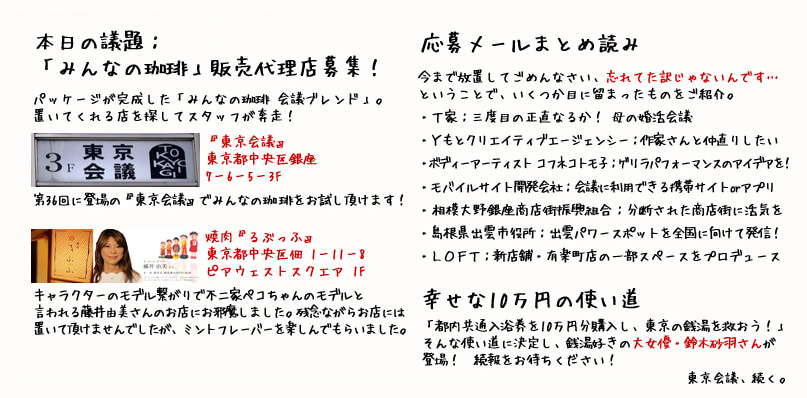 本日の議題;
「みんなの珈琲」販売代理店募集!
パッケージが完成した「みんなの珈琲 会議ブレンド」。
置いてくれる店を探してスタッフが奔走!
3F 東京会議
TOKYO KAIGI
『東京会議』
東京都中央区銀座
7-6-5-3F
第36回に登場の『東京会議』でみんなの珈琲をお試し頂けます!
焼肉『るぶっふ』
東京都中央区佃 1-11-8
ピアウェストスクエア 1F
キャラクターのモデル繋がりで不二家ペコちゃんのモデルと
言われる藤井由美さんのお店にお邪魔しました。残念ながらお店には
置いて頂けませんでしたが、ミントフレーバーを楽しんでもらいました。
応募メールまとめ読み
今まで放置してごめんなさい、忘れてた訳じゃないんです…
ということで、いくつか目に留まったものをご紹介。
・丁家;三度目の正直なるか! 母の婚活会議
・Yもとクリエイティブエージェンシー;作家さんと仲直りしたい
・ボディーアーティスト コフネコトモ子;ゲリラパフォーマンスのアイデアを!
・モバイルサイト開発会社;会議に利用できる携帯サイトorアプリ
・相模大野銀座商店街振興組合;分断された商店街に活気を
・島根県出雲市役所;出雲パワースポットを全国に向けて発信!
・LOFT;新店舗・有楽町店の一部スペースをプロデュース
幸せな10万円の使い道
「都内共通入浴券を10万円分購入し、東京の銭湯を救おう!」
そんな使い道に決定し、銭湯好きの大女優・鈴木砂羽さんが
登場! 続報をお待ちください!
東京会議、続く。